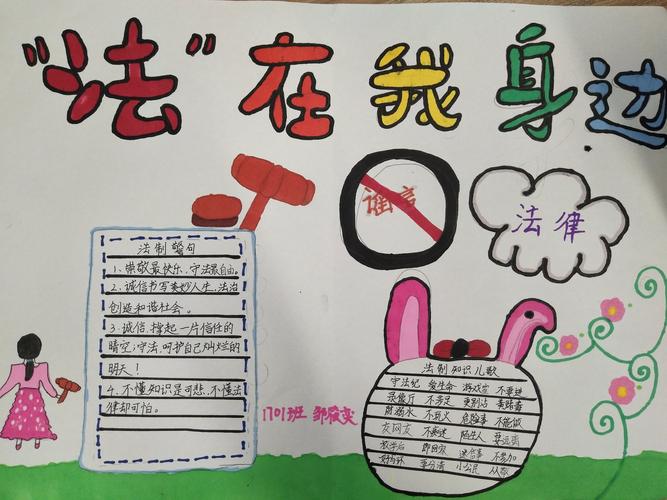 “法”在我身边
谣言
法律
法制警句
1、崇敬最快乐,守法最自由。
2、诚信书写美妙人生,法治
创造和谐社会。
3、诚信,撑起一片信任的
晴空;守法,呵护自己灿烂的
明天!
4、不懂知识是可悲,不懂法
律却可怕。
1701班
法制知识儿歌
守法纪 爱生命 游戏室 不要进
录像厅 不涉足 黄赌毒
防溺水 不玩火 危险事 不能做
交网友 不 陌生人 要远离
放学后 即回家 不参加
小公民 从